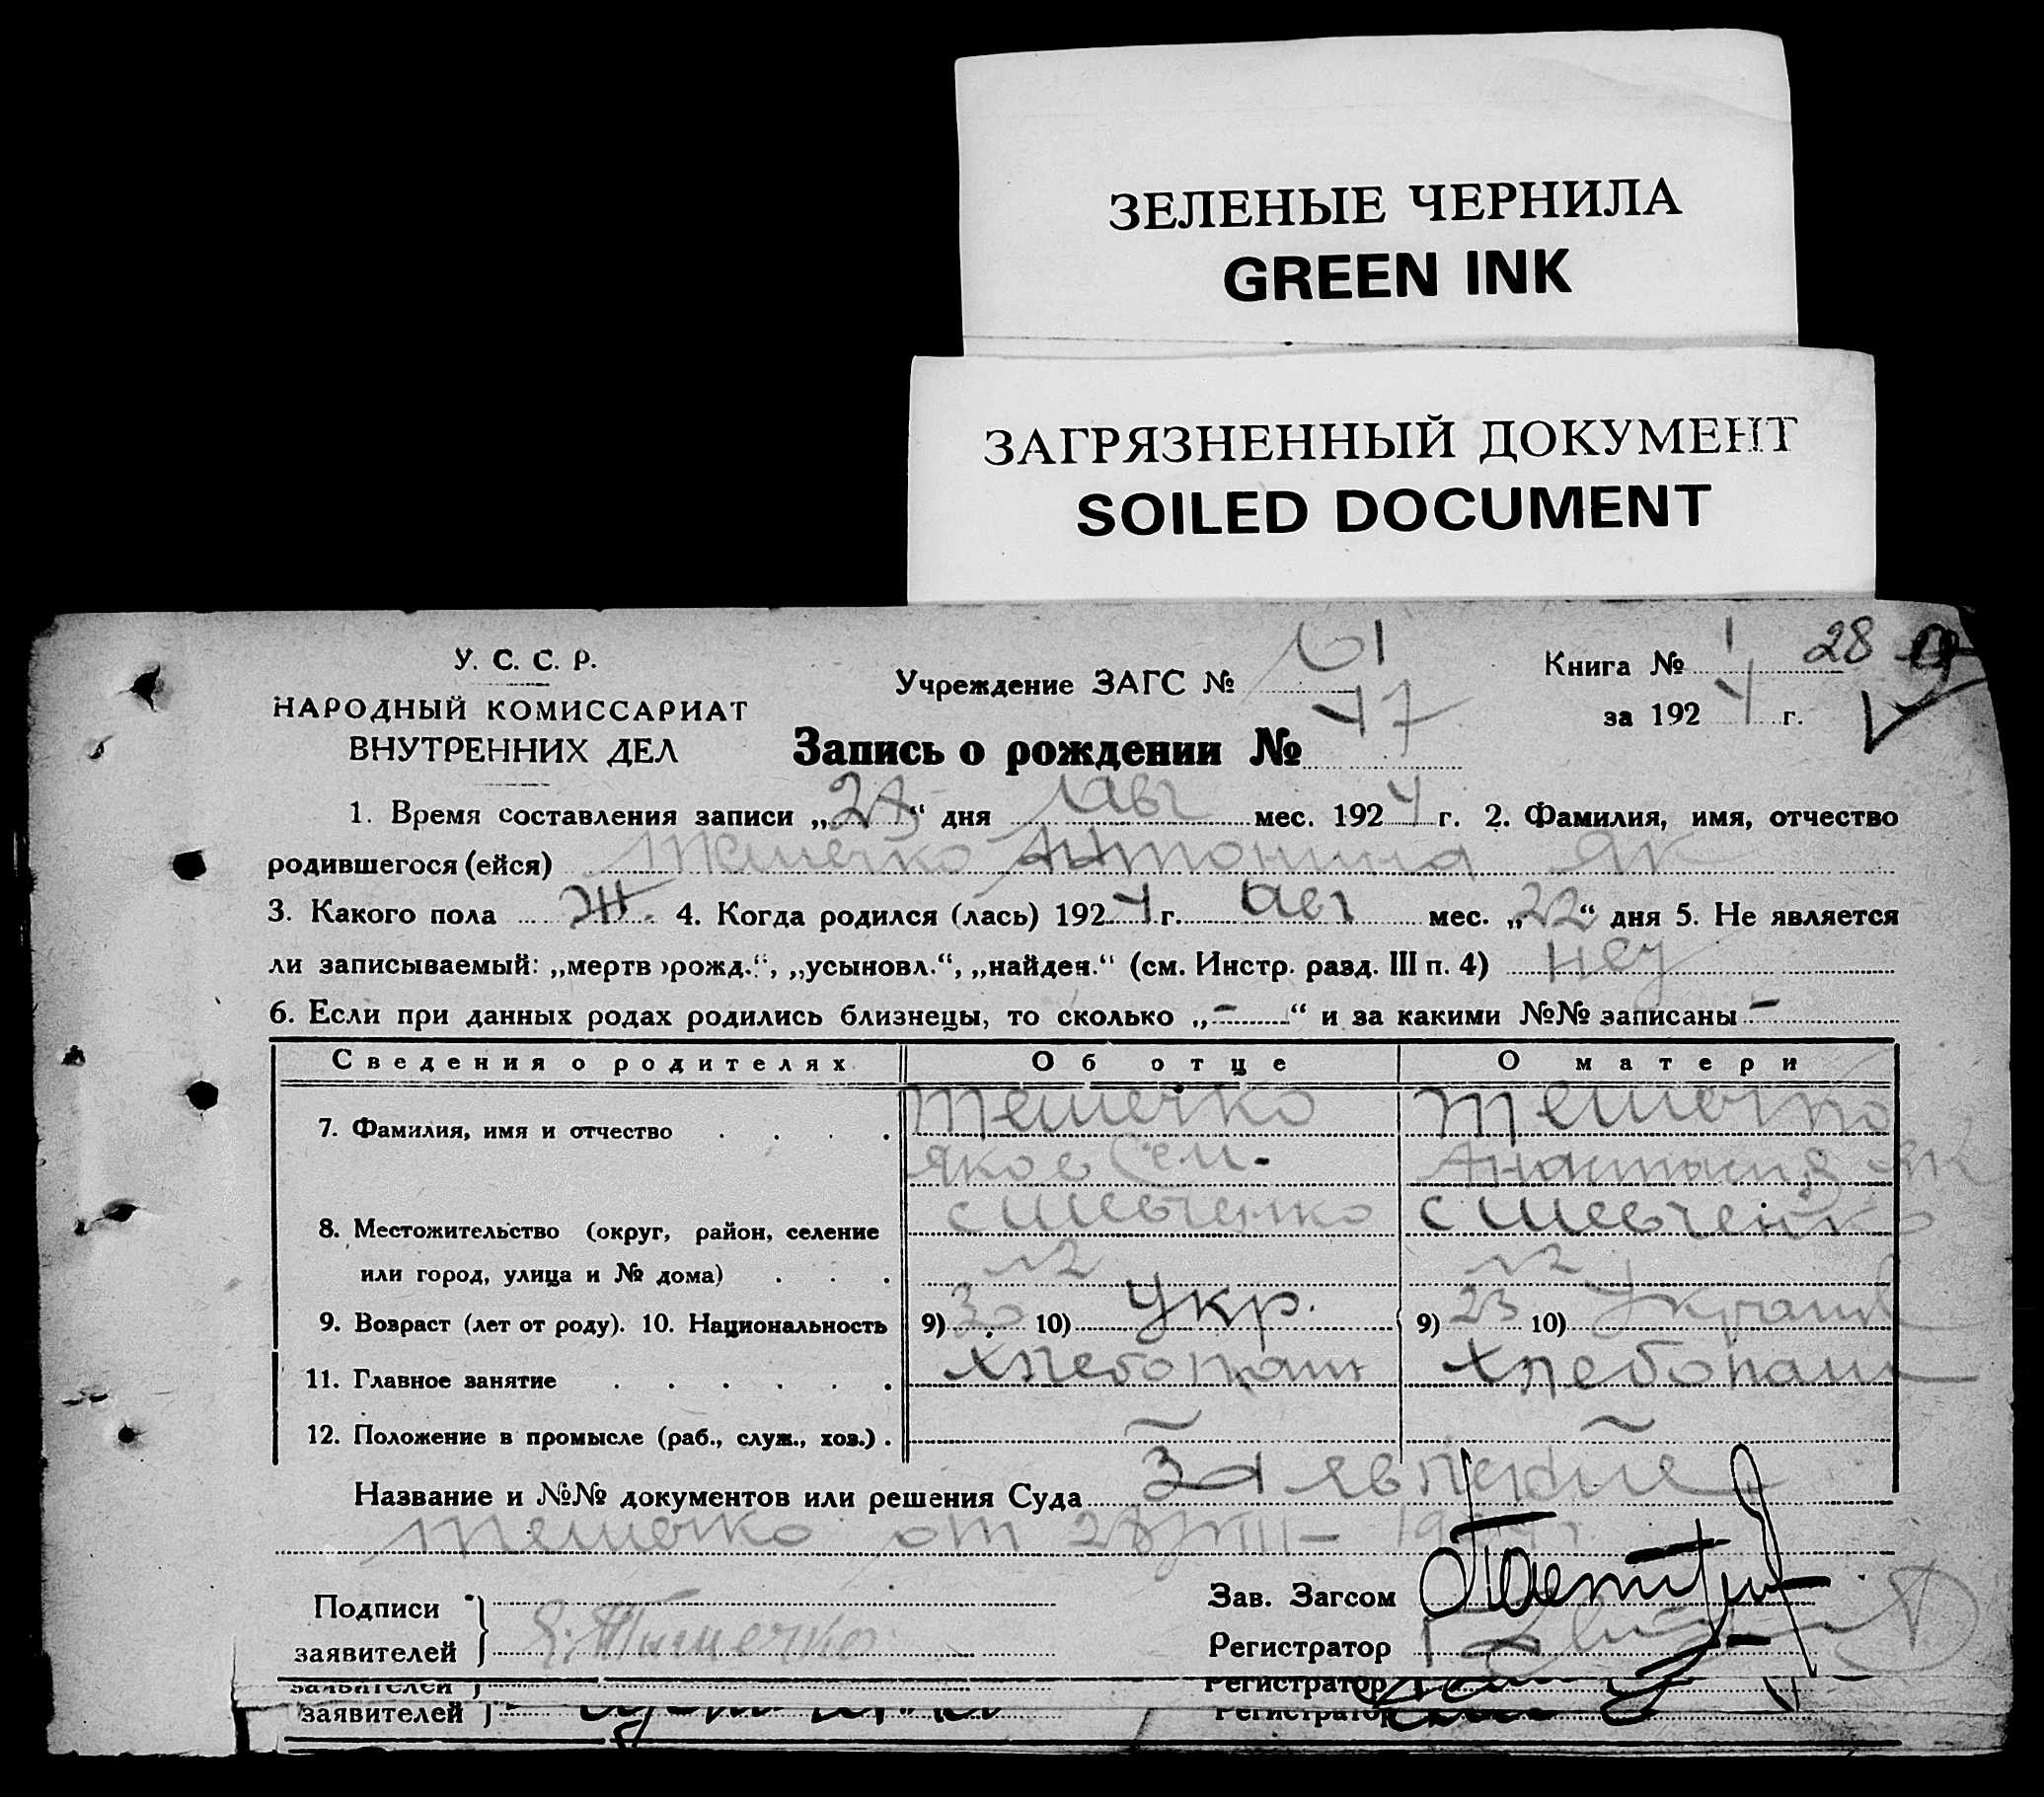 ЗЕЛЕНЫЕ ЧЕРНИЛА
GREEN INK
ЗАГРЯЗНЕННЫЙ ДОКУМЕНТ
SOILED DOCUMENT
У. С. С. Р.
НАРОДНЫЙ КОМИССАРИАТ
ВНУТРЕННИХ ДЕЛ
Учреждение ЗАГС №
Запись о рождении № 47
Книга № 1 28
за 1924 г.
1. Время составления записи „28“ дня Авг мес. 1924 г. 2. Фамилия, имя, отчество
родившегося (ейся) Тешечко Антонина Як
3. Какого пола Ж. 4. Когда родился (лась) 1924 г. Авг мес. „22“ дня 5. Не является
ли записываемый: „мертворожд.“, „усыновл.“, „найден.“ (см. Инстр. разд. III п. 4)
6. Если при данных родах родились близнецы, то сколько „-“ и за какими №№ записаны -
Сведения о родителях Об отце О матери
7. Фамилия, имя и отчество Тешечко Тешечко
Яков Сем. Анастасия Як
8. Местожительство (округ, район, селение с Шевченко с Шевченко
или город, улица и № дома)
9. Возраст (лет от роду). 10. Национальность 9) 30 10) Укр. 9) 23 10) Украин
11. Главное занятие Хлебопаш Хлебопаш
12. Положение в промысле (раб., служ., хоз.) - -
Название и №№ документов или решения Суда Заявление
Тешечко от 28/VIII - 1924 г.
Подписи
заявителей Я. Тешечко
Зав. Загсом
Регистратор
заявителей
Регистратор
заявителей
Регистратор